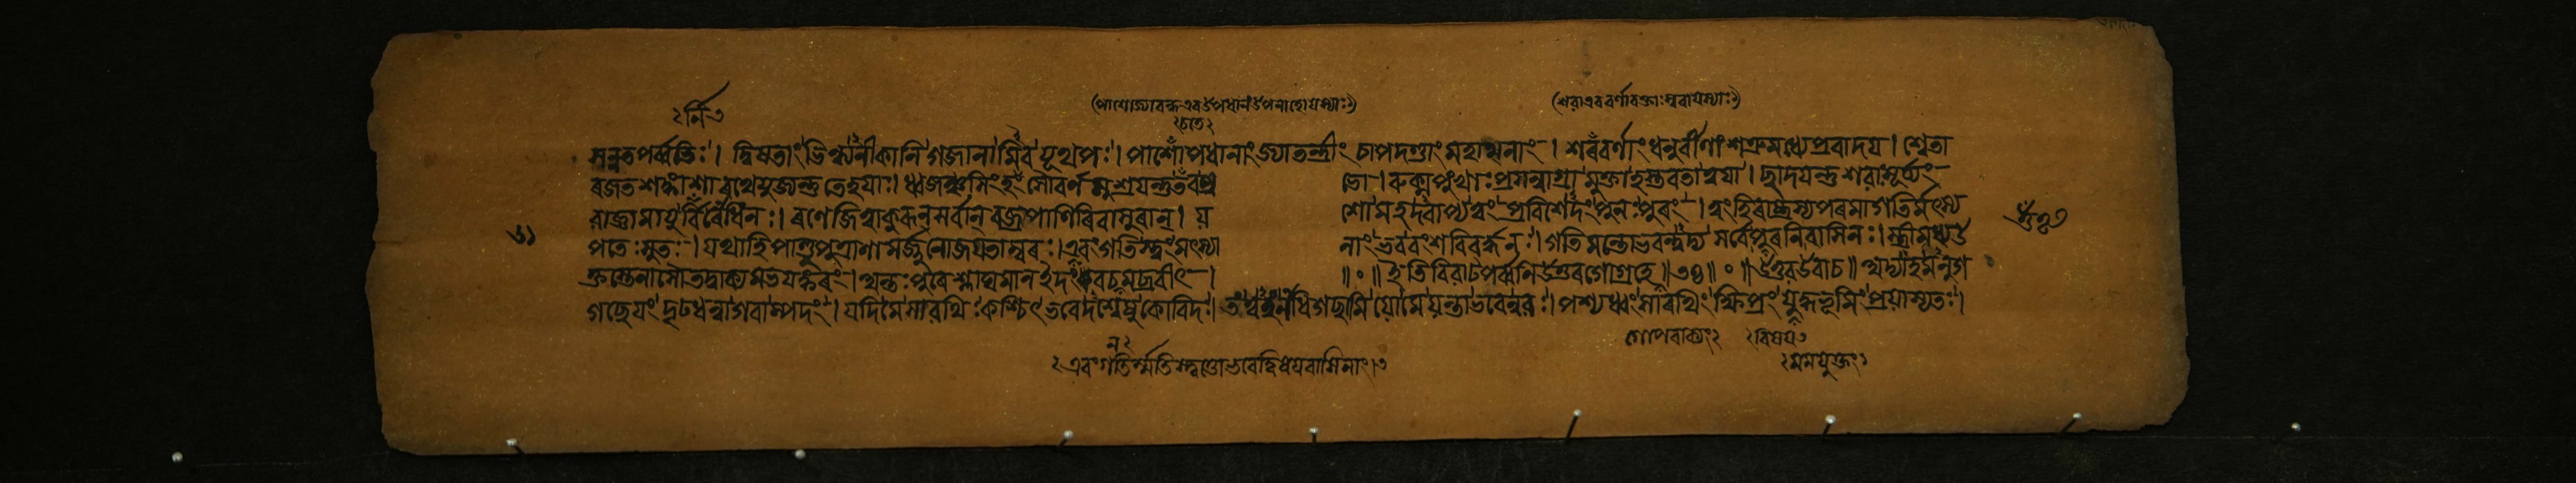 র্নি
(পাশোজ্যাবন্ধএবউপধানংউপনাহোযস্যাঃ)
(শরাএববর্ণাবক্তাঃস্বরাযস্যাঃ)
সন্নতপর্ব্বভিঃ। দ্বিষতাংভিন্ধ্যনীকানি গজানামিব যূথপঃ। পাশোপধানাং জ্যাতন্ত্রীং চাপদণ্ডাং মহাস্বনাং। শরবর্ণাং ধনুর্বীণাং শত্রুমধ্যেপ্রবাদয। শ্বেতা
রজতশঙ্কাশা রথেযুজ্যন্তু তেহযাঃ। ধ্বজঞ্চসিংহং সৌবর্ণমুশ্রযন্তুতবপ্র ভো। রুক্মপুংখাঃ প্রসন্নাগ্রা মুক্তাহস্তবতাত্বযা। ছাদযন্তু শরাঃসূর্য্যং
রাজ্ঞামাযুর্বিরোধিনঃ। রণেজিত্বাকুরূন্সর্বান্ বজ্রপাণিরিবাসুরান্। য শোমহদবাপ্যত্বং প্রবিশেদং পুনঃপুরং। ত্বংহিরাষ্ট্রস্যপরমাগতির্মৎস্য
পতেঃসুতঃ। যথাহিপাণ্ডুপুত্রাণামর্জ্জুনোজযতাম্বরঃ। এবংগতিস্ত্বংমৎস্যা নাংভববংশবিবর্দ্ধনঃ। গতিমন্তোভবন্ত্বদ্য সর্বেপুরনিবাসিনঃ। স্ত্রীমধ্যউ
ক্তস্তেনাসৌতদ্বাক্যমভযঙ্করং। অন্তঃপুরেশ্লাঘমানইদংবচনমব্রবীৎ। ॥ ॰ ॥ ইতিবিরাটপর্ব্বণিউত্তরগোগ্রহে॥ ॥ ॰ ॥ উত্তরউবাচ॥ অদ্যাহমনুগ
গছেযং দৃঢধন্বাগবাম্পদং। যদিমেসারথিঃকশ্চিৎভবেদশ্বেষুকোবিদঃ। তন্ত্বহংনাধিগছামি যোমেযন্তাভবেন্নরঃ। পশ্যধ্বংসারথিং ক্ষিপ্রং প্রযাস্যতঃ।
গোপবাক্যং
বিষয
এবংগতির্
মমযুক্তং